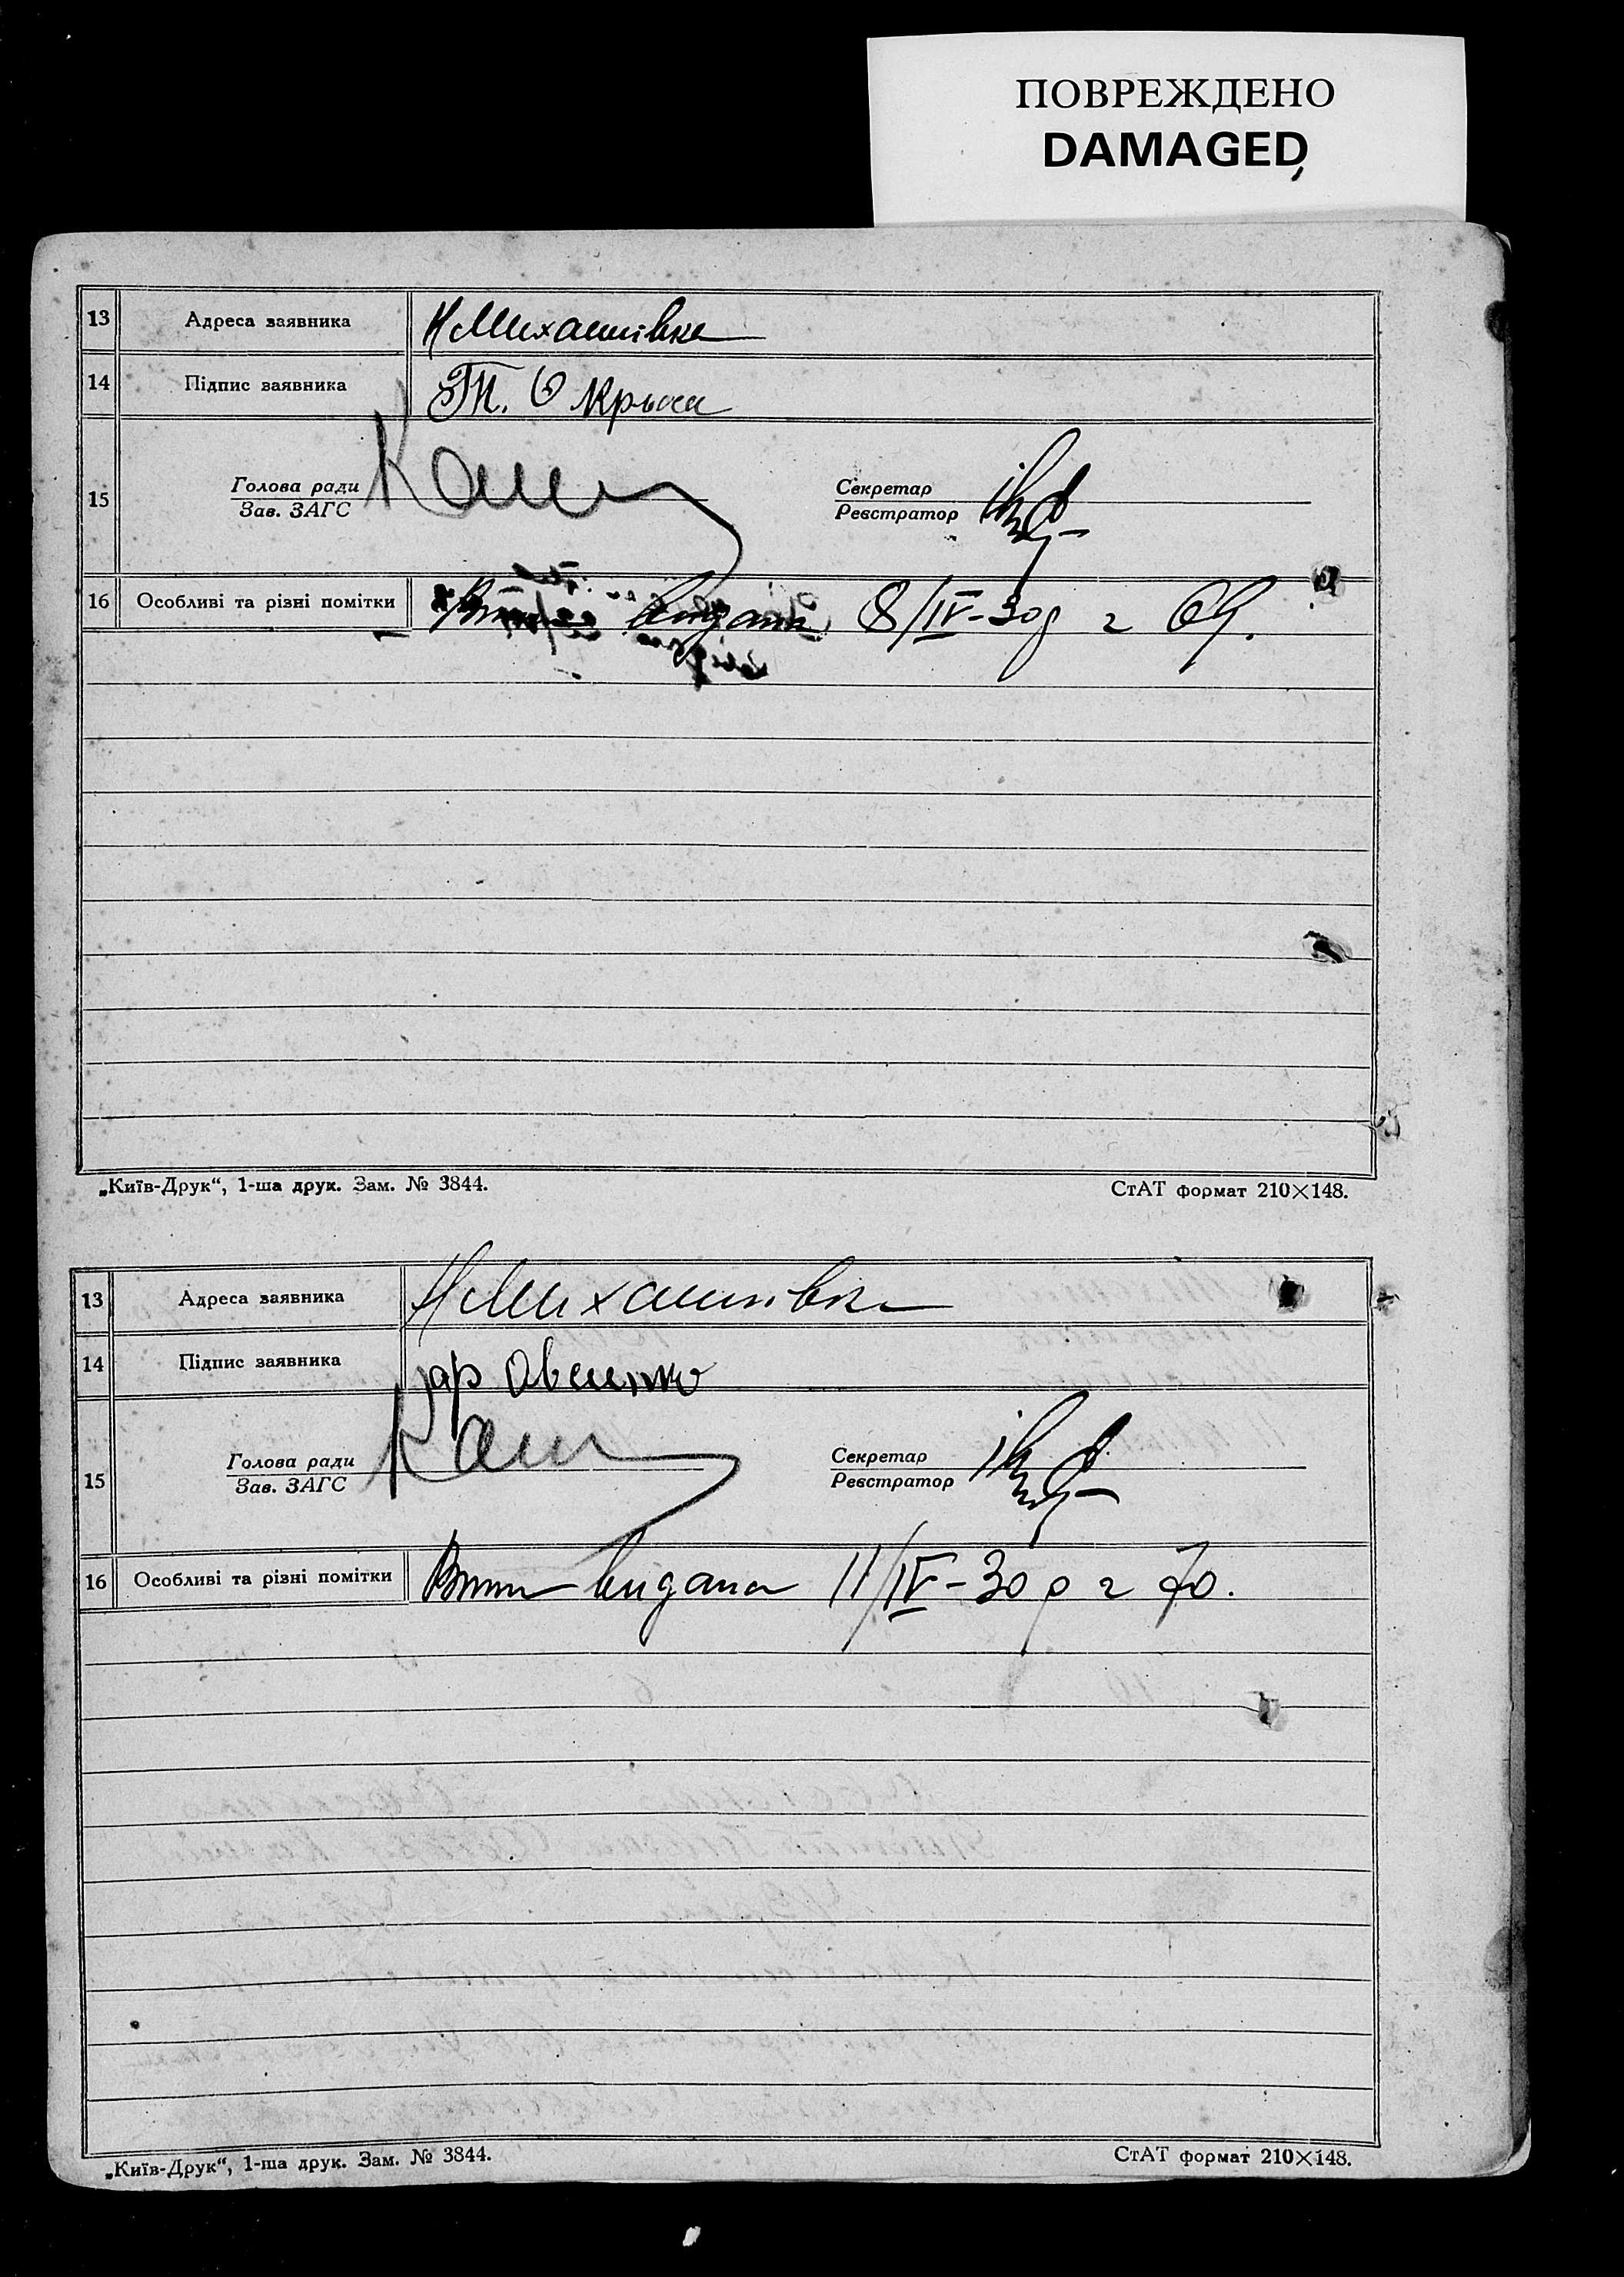 ПОВРЕЖДЕНО
DAMAGED
13 Адреса заявника Н Михайлівка
14 Підпис заявника
Голова ради Секретар
15
Зав. ЗАГС Реєстратор
16 Особливі та різні помітки видана 8/IV-30р 69.
„Київ-Друк“, 1-ша друк. Зам. № 3844. СтАТ формат 210×148.
13 Адреса заявника Н Михайлівка
14 Підпис заявника Овсієнко
Голова ради Секретар
15
Зав. ЗАГС Реєстратор
16 Особливі та різні помітки видана 11/IV-30 р 70.
„Київ-Друк“, 1-ша друк. Зам. № 3844. СтАТ формат 210×148.